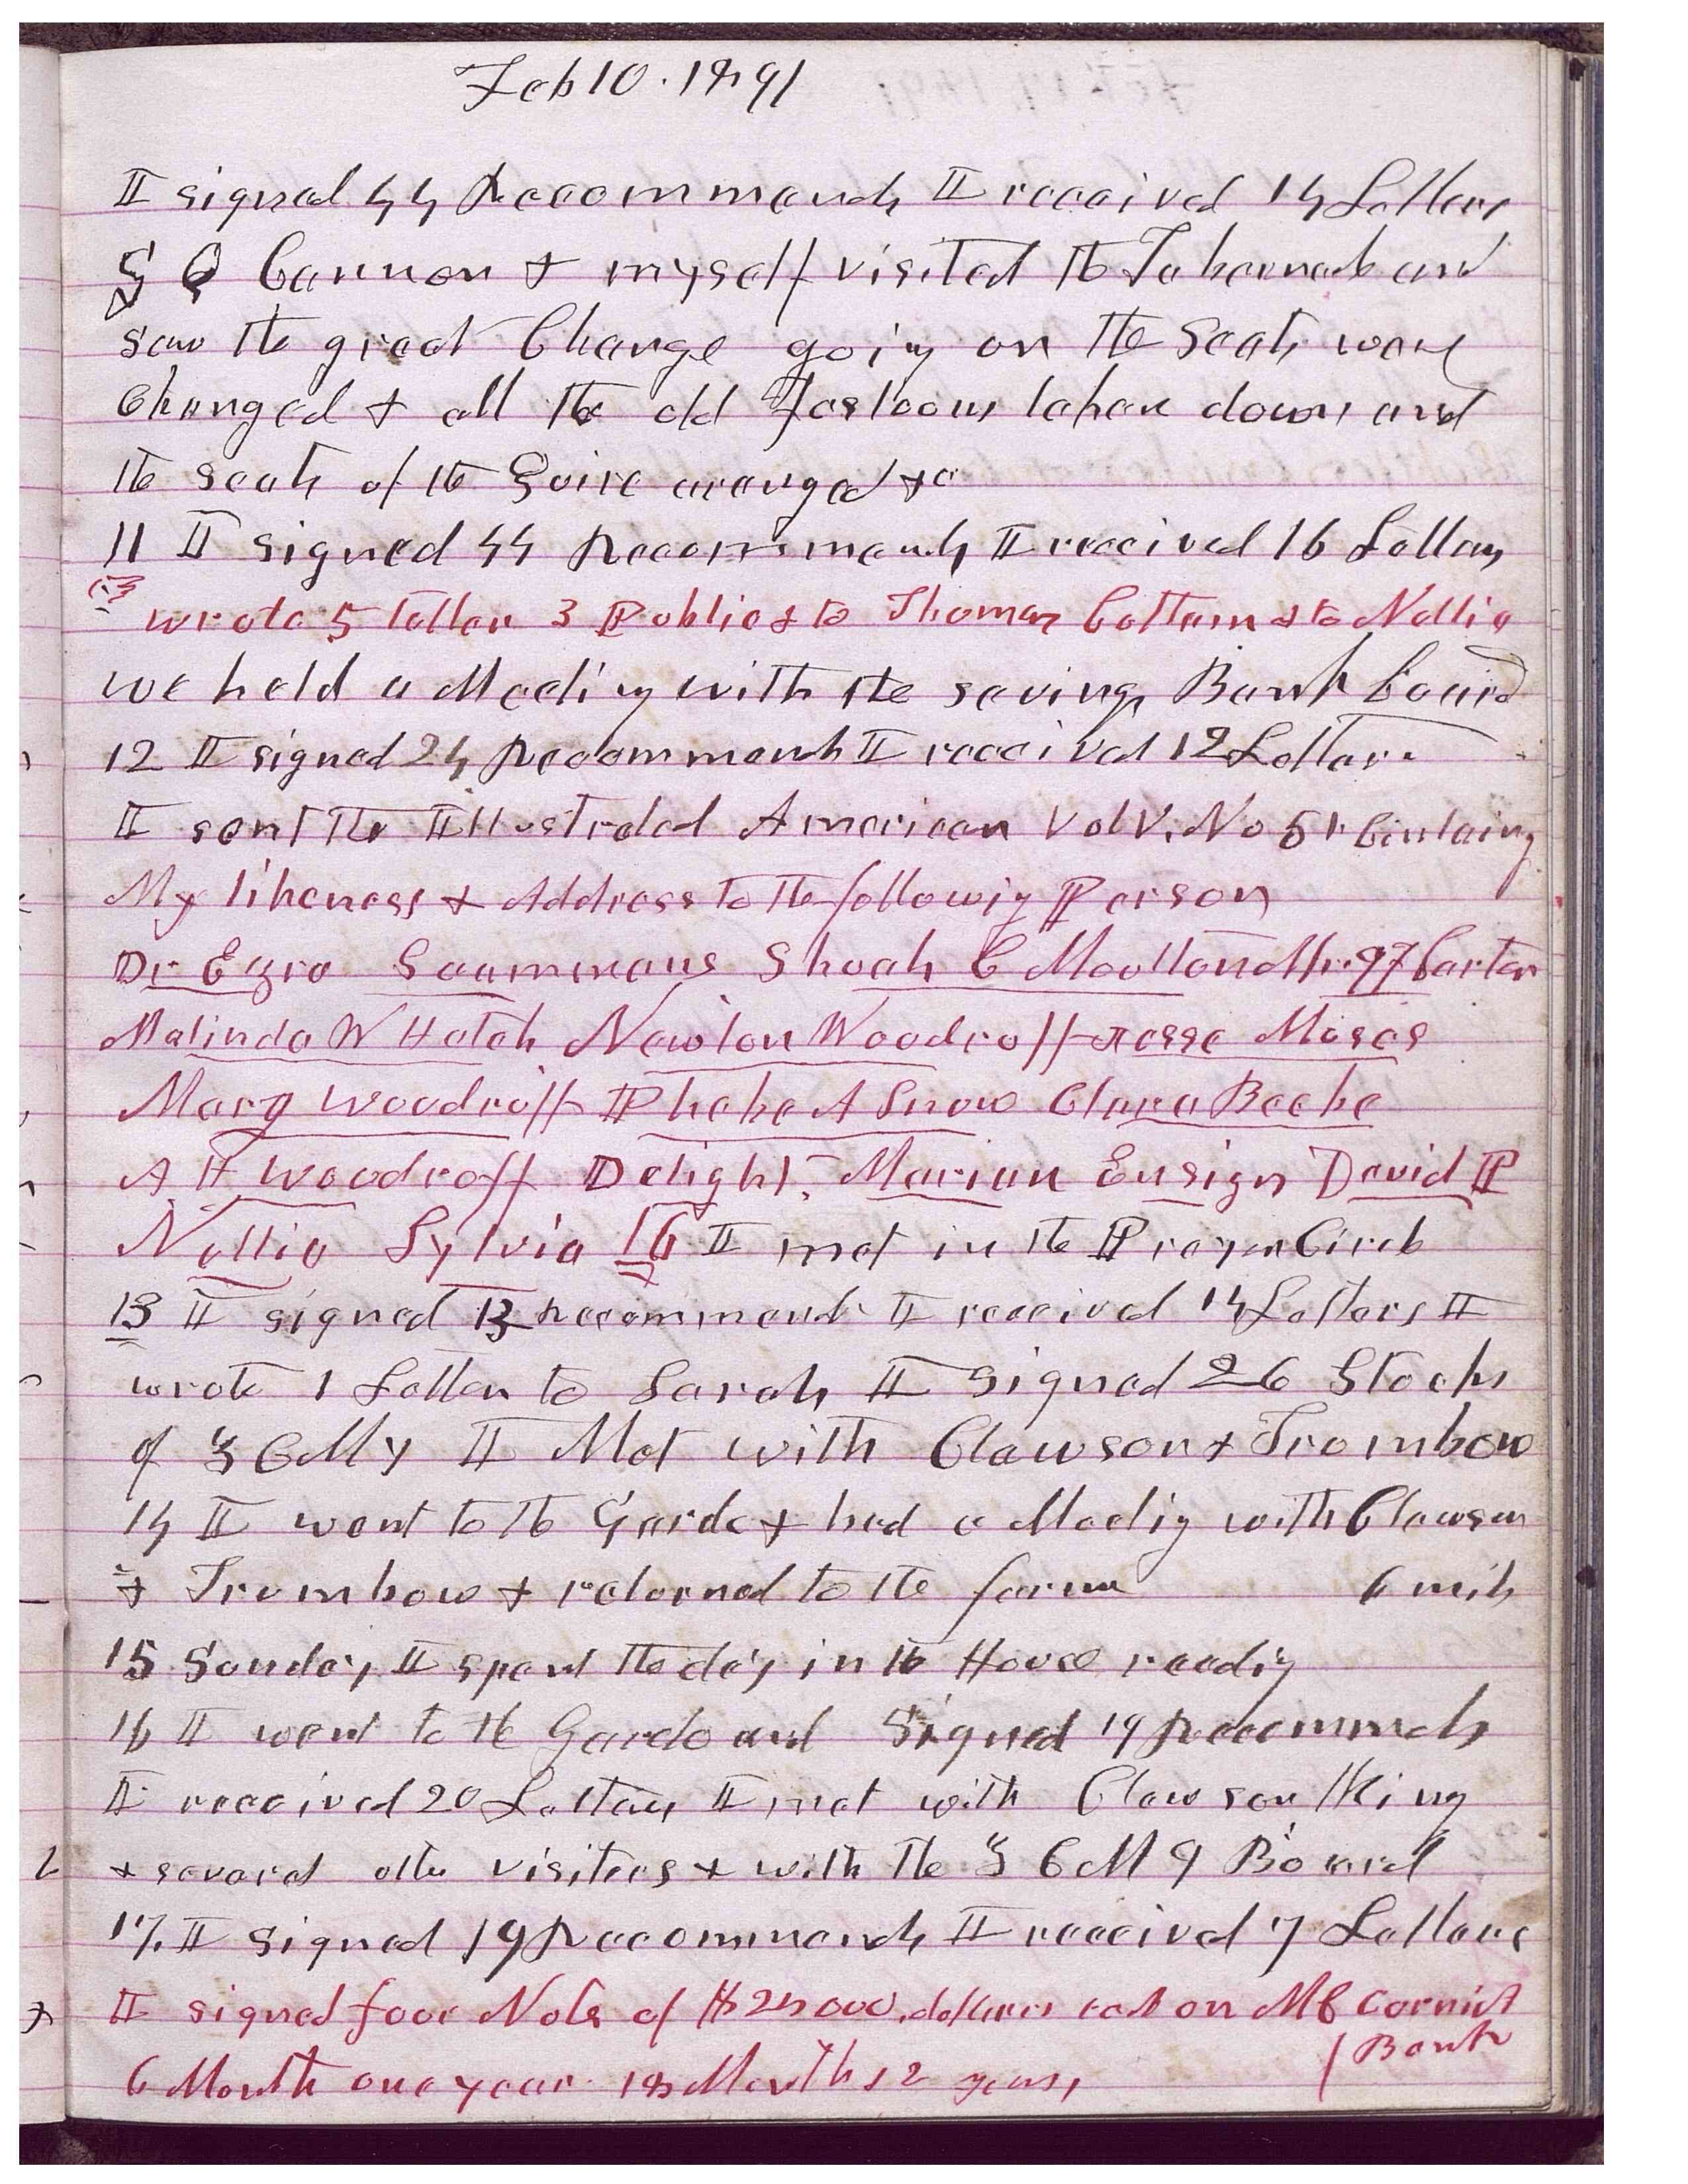 Feb 10. 1891
I signed 44 Recommends I received 14 Letters
G Q Cannon & myself visited the Tabernacle and
saw the great Change going on the Seats were
Changed & all the old Festoons taken down and
the seats of the Quire arranged &c
11 I signed 44 Recommends I received 16 Letters
wrote 5 letters 3 Public & to Thomas Cottam & to Nellie
we held a Meeting with the savings Bank board
12 I signed 24 Recommends I received 12 Letters
I sent the Illustrated American Vol V. No 51 Containing
My likeness & Address to the following Persons
Dr Ezra Sammans Shuah C Moulton Mr Carter
Malinda W Hatch Newton Woodruff Jesse Moses
Mary Woodruff Phebe A Snow Clara Beebe
A H Woodruff Delight. Marian Ensign David P
Nellie Sylvia 16 I met in the Prayer Circle
13 I signed 13 recommends I received 14 Letters I
wrote 1 Letter to Sarah I signed 26 Stocks
of Z C M I I Met with Clawson & Trombow
14 I went to the Gardo & had a Meeting with Clawson
& Trumbow & returned to the farm 6 mils
15 Sunday I spent the day in the House reading
16 I went to the Gardo and Signed 19 Recommends
I received 20 Letters I met with Clawson King
& several other visitors & with the Z C M I Board
17. I signed 19 Recommends I received 7 Letters
I signed four Notes of $25000. dollars each on McCornick
Bank
6 Month one year. 18 Months & 2 years,